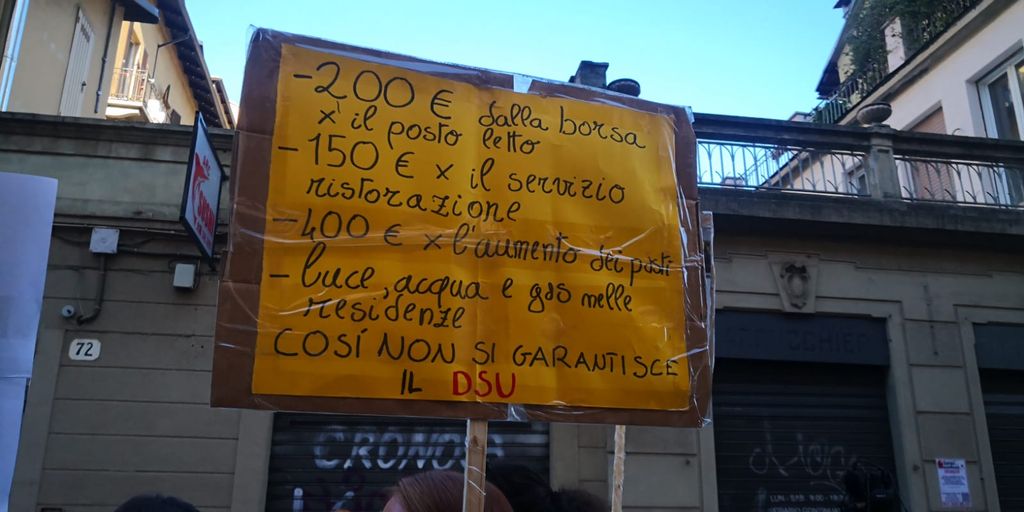 -200 € dalla borsa
x il posto letto
-150 € x il servizio
ristorazione
-400 € x l'aumento dei pasti
- luce, acqua e gas nelle
residenze
COSÍ NON SI GARANTISCE
IL DSU
72
CRONOS